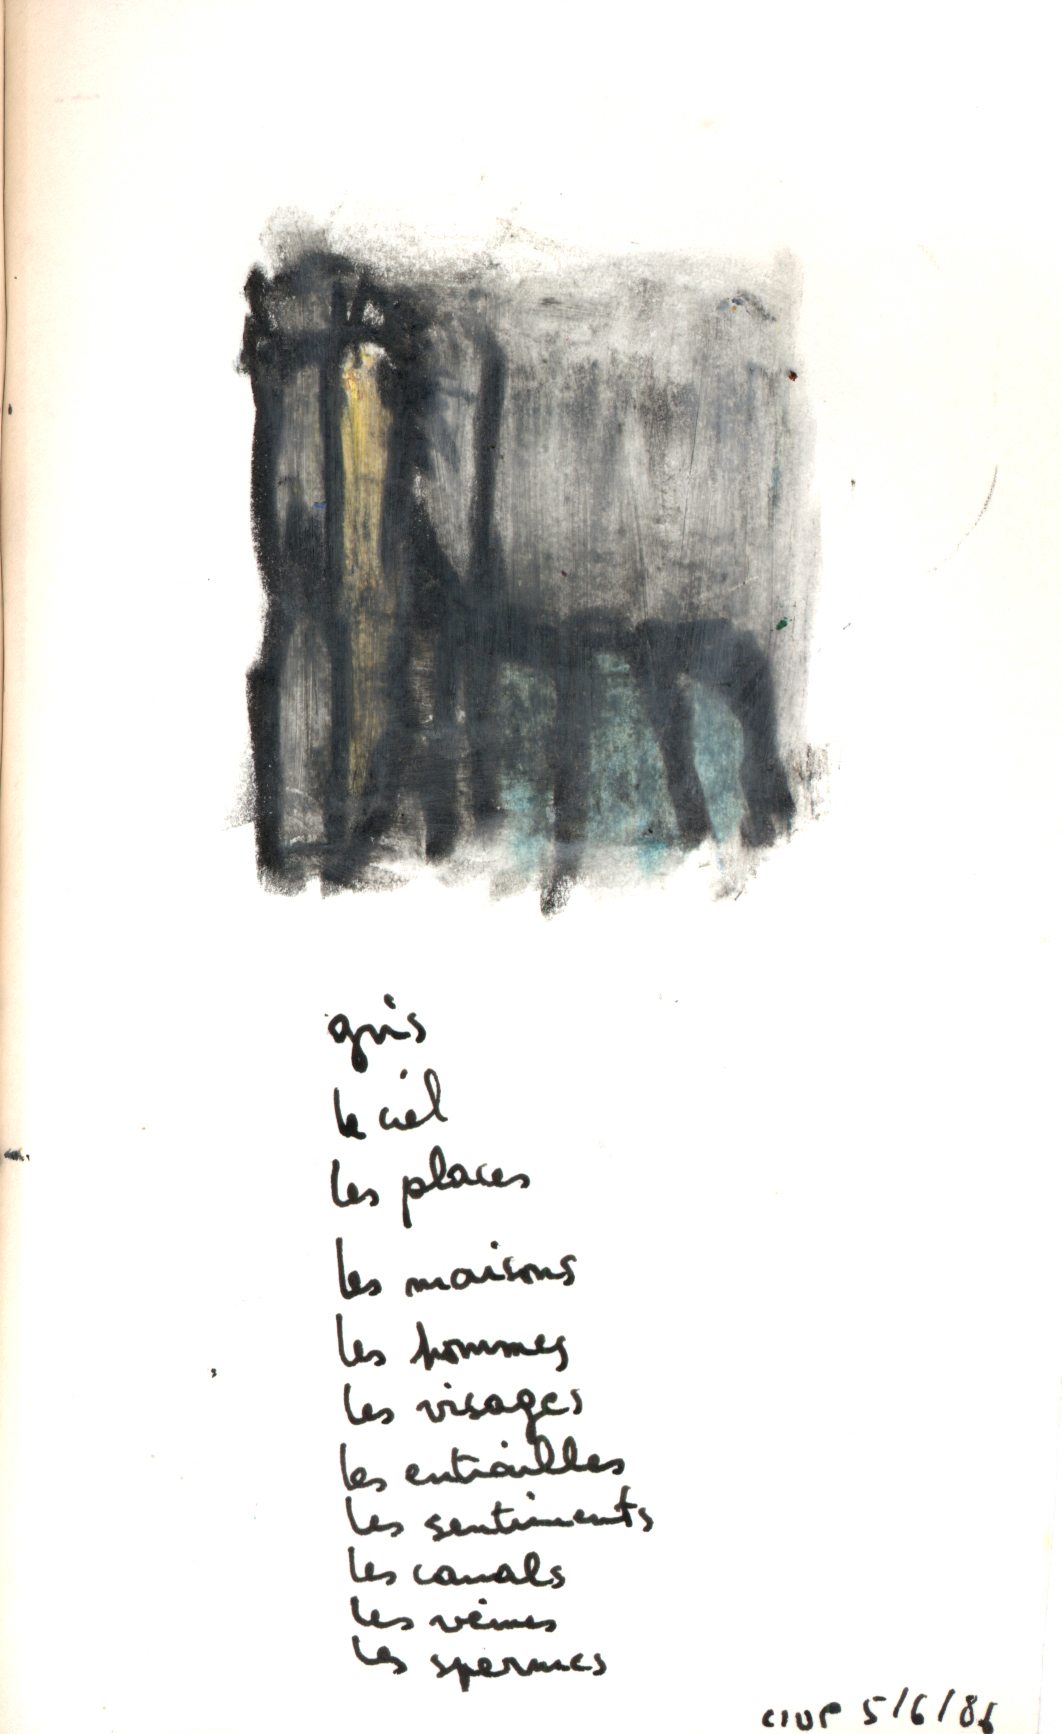 gris
le ciel
les places
les maisons
les hommes
les visages
les entrailles
les sentiments
les canals
les veines
les spermes
CIUP 5/6/86